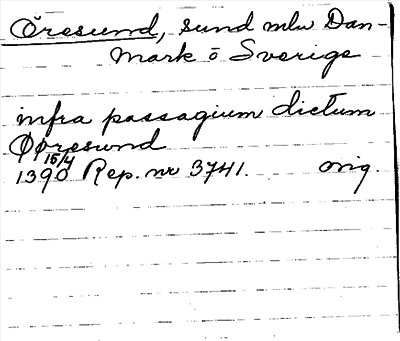 Öresund, sund mlw Dan-
mark ō Sverige
infra passagium dictum
Ø̸resund
15/4
1390 Rep. nr 3741. orig.